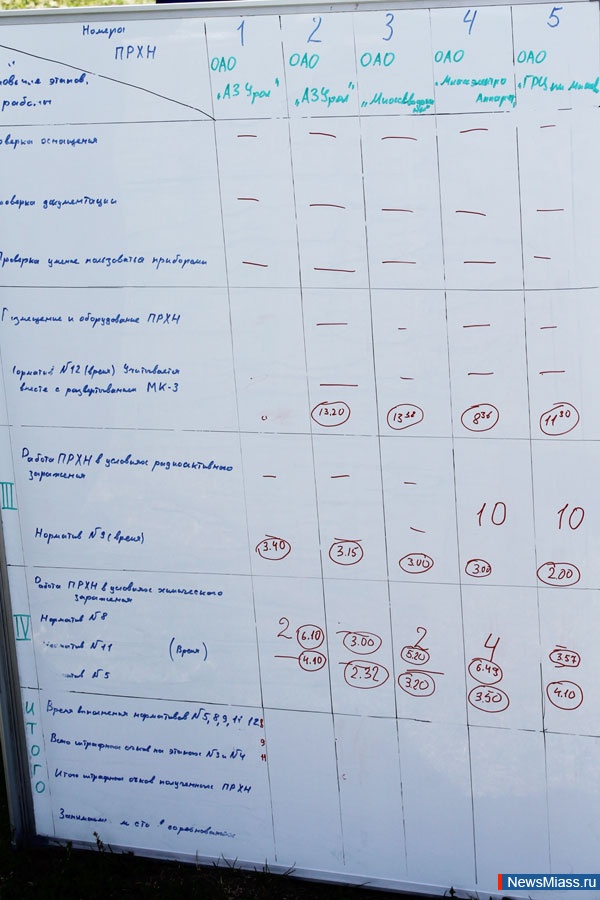 Номера 1 2 3 4 5
ПРХН
ОАО ОАО ОАО ОАО ОАО
„АЗ Урал" „АЗ Урал"
этапов,
работы
оверка оснащения — — — — —
оверка документации — — — — —
Проверка умение пользоваться приборами — — — — —
змещение и оборудование ПРХН — – — –
орматив №12 (время) Учитывается
вместе с развертыванием МК-3 — – — —
13.20 13 38 8 36 11 30
Работа ПРХН в условиях радиоактивного
заражения – — –
III 10 10
Норматив №9 (время) 3.40 3.15 3.00 3.00 2.00
Работа ПРХН в условиях химического
заражения
IV Норматив №8 2 6.10 3.00 2 5.20 4 6.49 3.57
№11 (Время) 4.10 2.32 3.20 3.50 4.10
тив №5
ИТОГО
Время выполнения нормативов №5, 8, 9, 11 12 8
Всего штрафных очков на этапах №3 и №4 9
11
Итого штрафных очков полученных ПРХН
место в соревнованиях
NewsMiass.ru